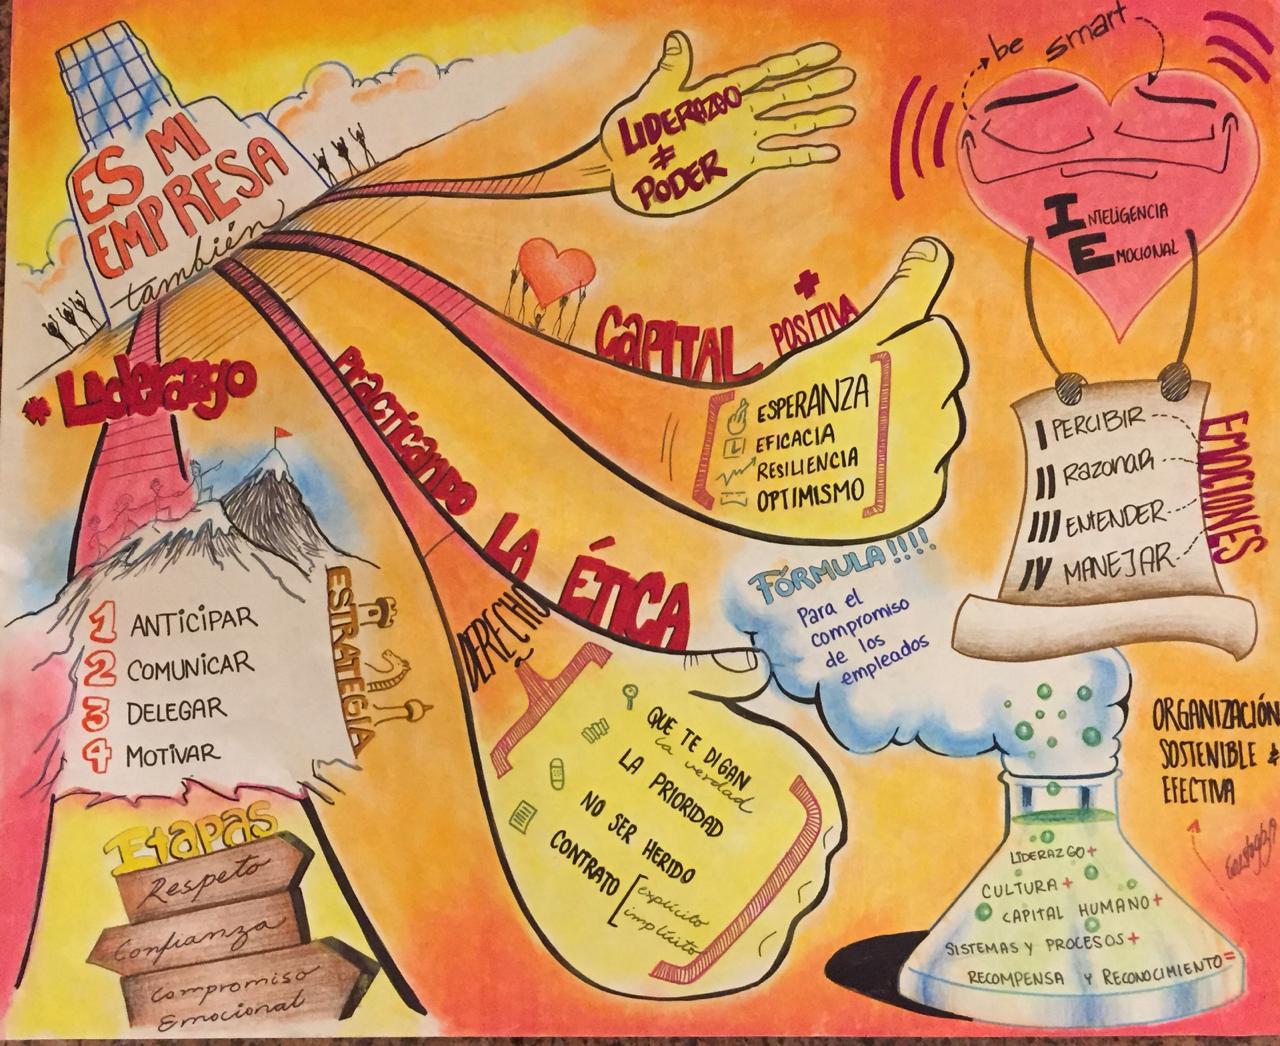 ES MI
EMPRESA
también
LIDERAZGO
≠
PODER
be smart
INTELIGENCIA
EMOCIONAL
CAPITAL + POSITIVA
ESPERANZA
EFICACIA
RESILIENCIA
OPTIMISMO
I PERCIBIR
II RAZONAR
III ENTENDER
IV MANEJAR
EMOCIONES
* Liderazgo
1 ANTICIPAR
2 COMUNICAR
3 DELEGAR
4 MOTIVAR
ESTRATEGIA
Etapas
Respeto
Confianza
Compromiso
Emocional
PRACTICANDO LA ÉTICA
DERECHO
A
QUE TE DIGAN
la verdad
LA PRIORIDAD
NO SER HERIDO
CONTRATO
explícito
implícito
FÓRMULA!!!!
Para el
compromiso
de los
empleados
LIDERAZGO+
CULTURA+
CAPITAL HUMANO+
SISTEMAS Y PROCESOS+
RECOMPENSA Y RECONOCIMIENTO=
ORGANIZACIÓN
SOSTENIBLE +
EFECTIVA